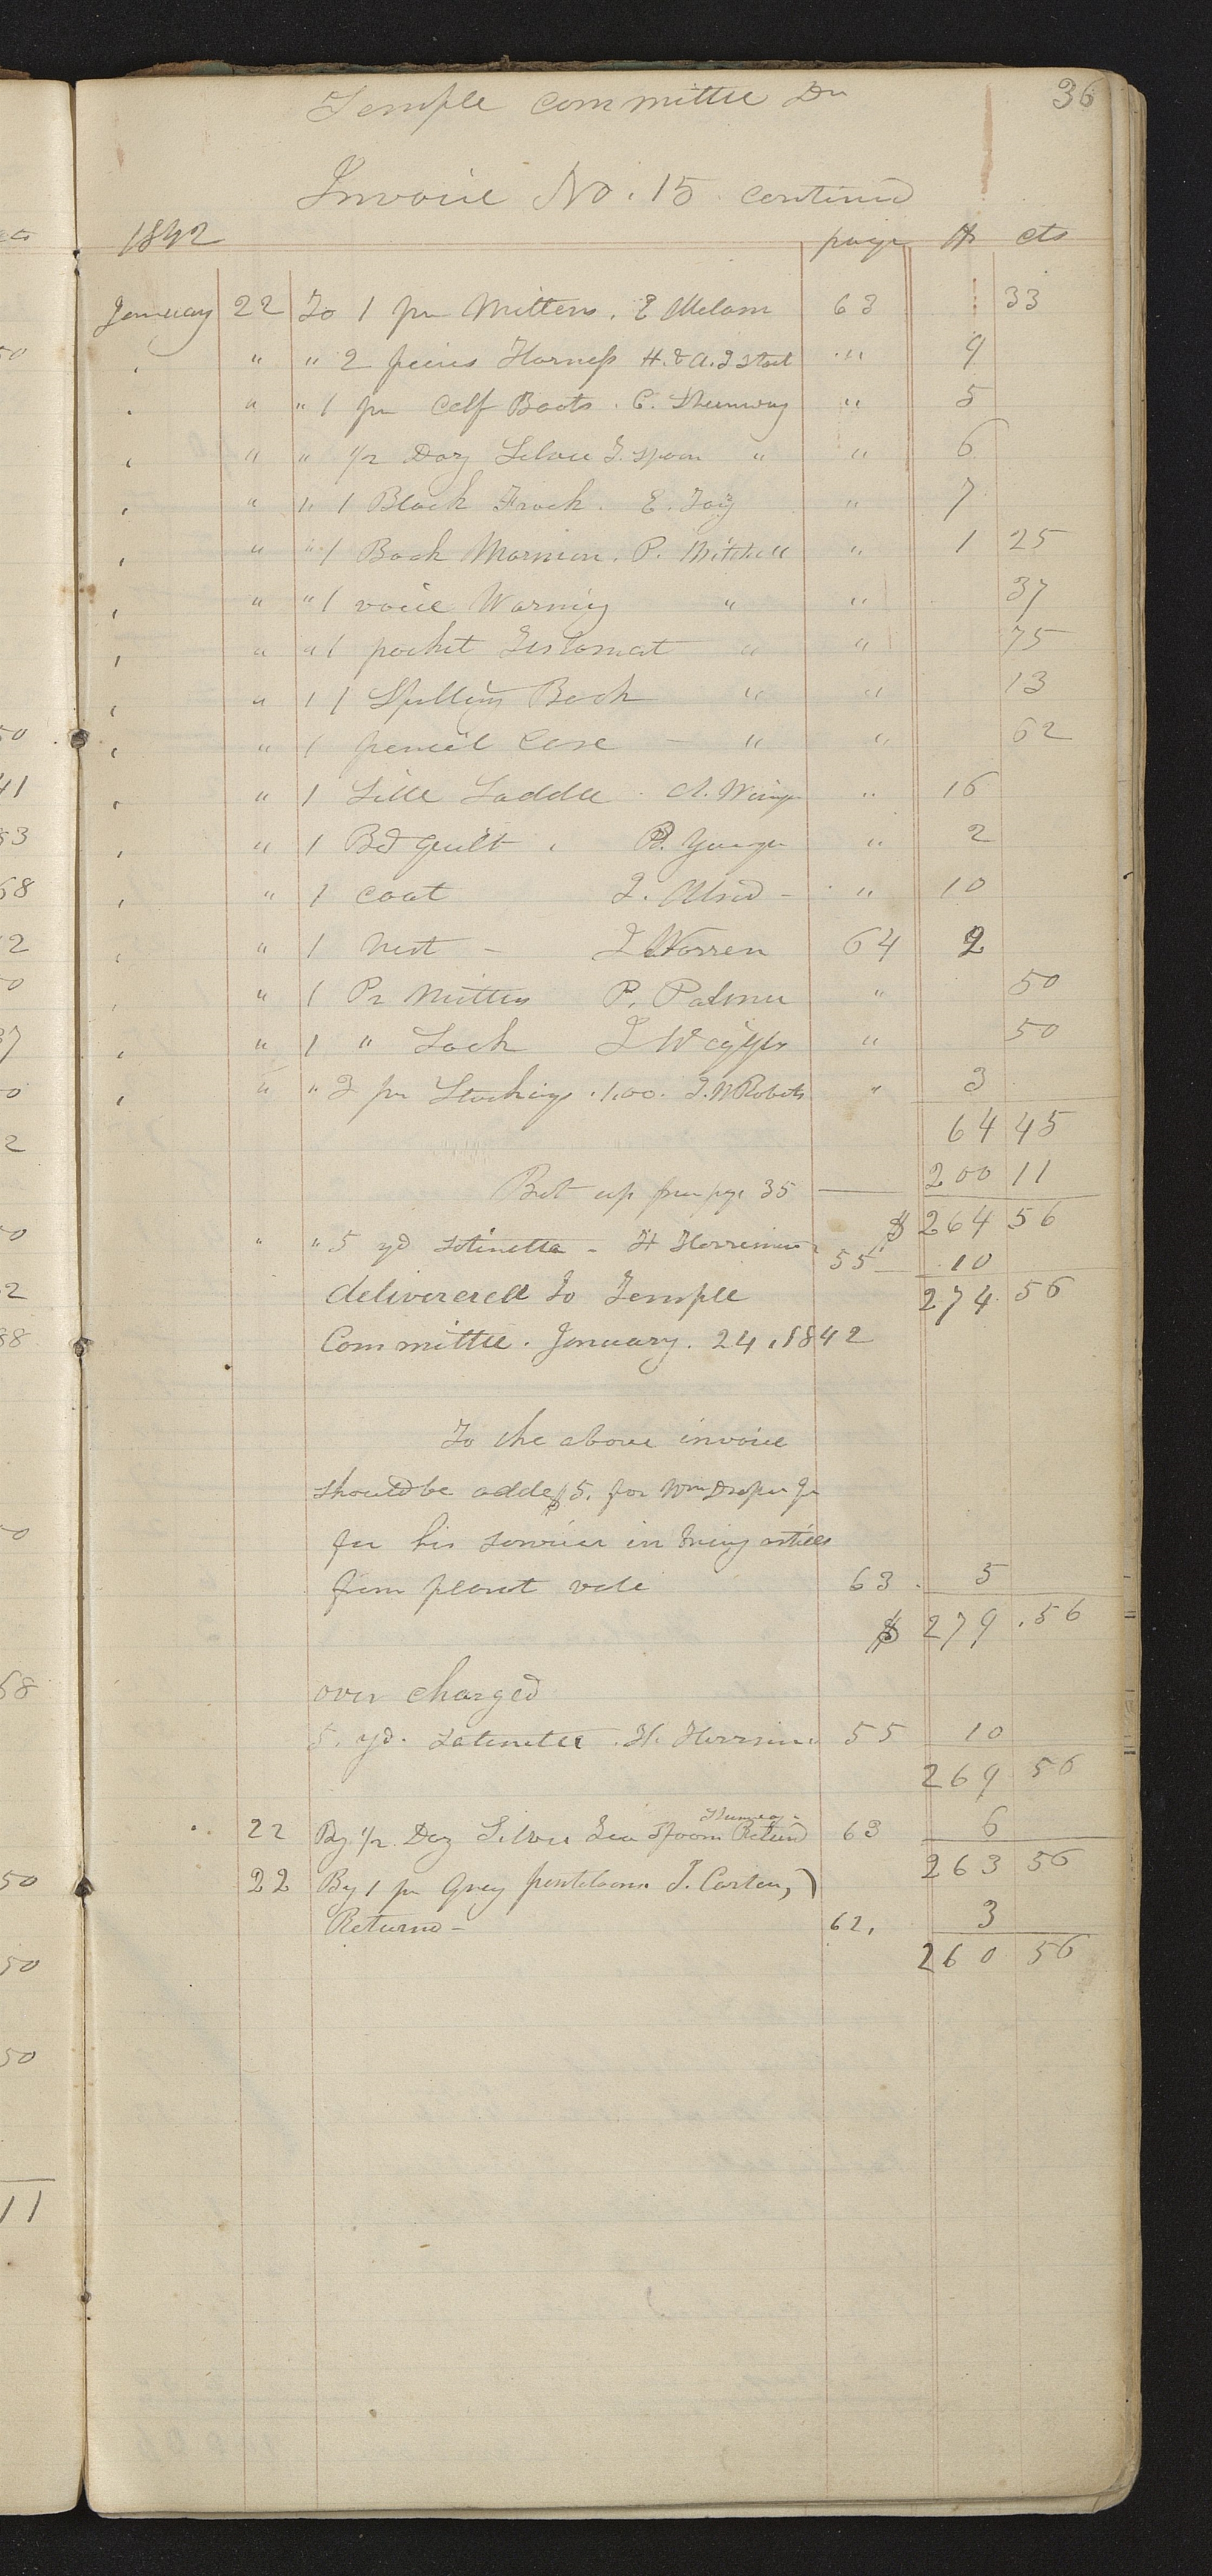 Temple committee Dr 36
Invoice No. 15 continud
1842 page $ cts
January 22 To 1 pr Mittens. E 63 33
" " 2 peices Harness H. & A. J Stout " 9
" " 1 pr Calf Boots. C. Shumway " 5
" " 1/2 Doz Silver T. spoon " " 6
" " 1 Black Frock. E. " 7
" " 1 Book Mormon. P. Mitchell " 1 25
" " 1 voice Warning " " 37
" " 1 pocket Testamat " " 75
" 1 1 Spelling Book " " 13
" 1 pencil Case - " " 62
" 1 Saddle. A. " 16
" 1 Bd Quilt. B. " 2
" 1 coat J. - " 10
" 1 Vest - J Warren 64 2
" 1 Pr Mittens P. Palmer " 50
" 1 " Sock J " 50
" " 3 pr Stockings. 1,00. J. W Roberts " 3
64 45
Brt up from page 35 200 11
$ 264 56
" " 5 yd satinette - H 55 10
delivereed to Temple 274. 56
Committee. January. 24, 1842
To the above invoice
should be added $5. for Wm Draper Jr
for his service in articles
from 63 . 5
$ 279 . 56
over charged
5. yd. Satinette. H. 55 10
269 56
Shumway
22 By 1/2 Doz Silver Tea Spoons Returnd 63 6
263 56
22 By 1 pr Grey pantiloons J. Carter,)
Returnd - 62, 3
260 56
50
41
53
68
12
50
37
50
2
38
50
68
50
50
50
11